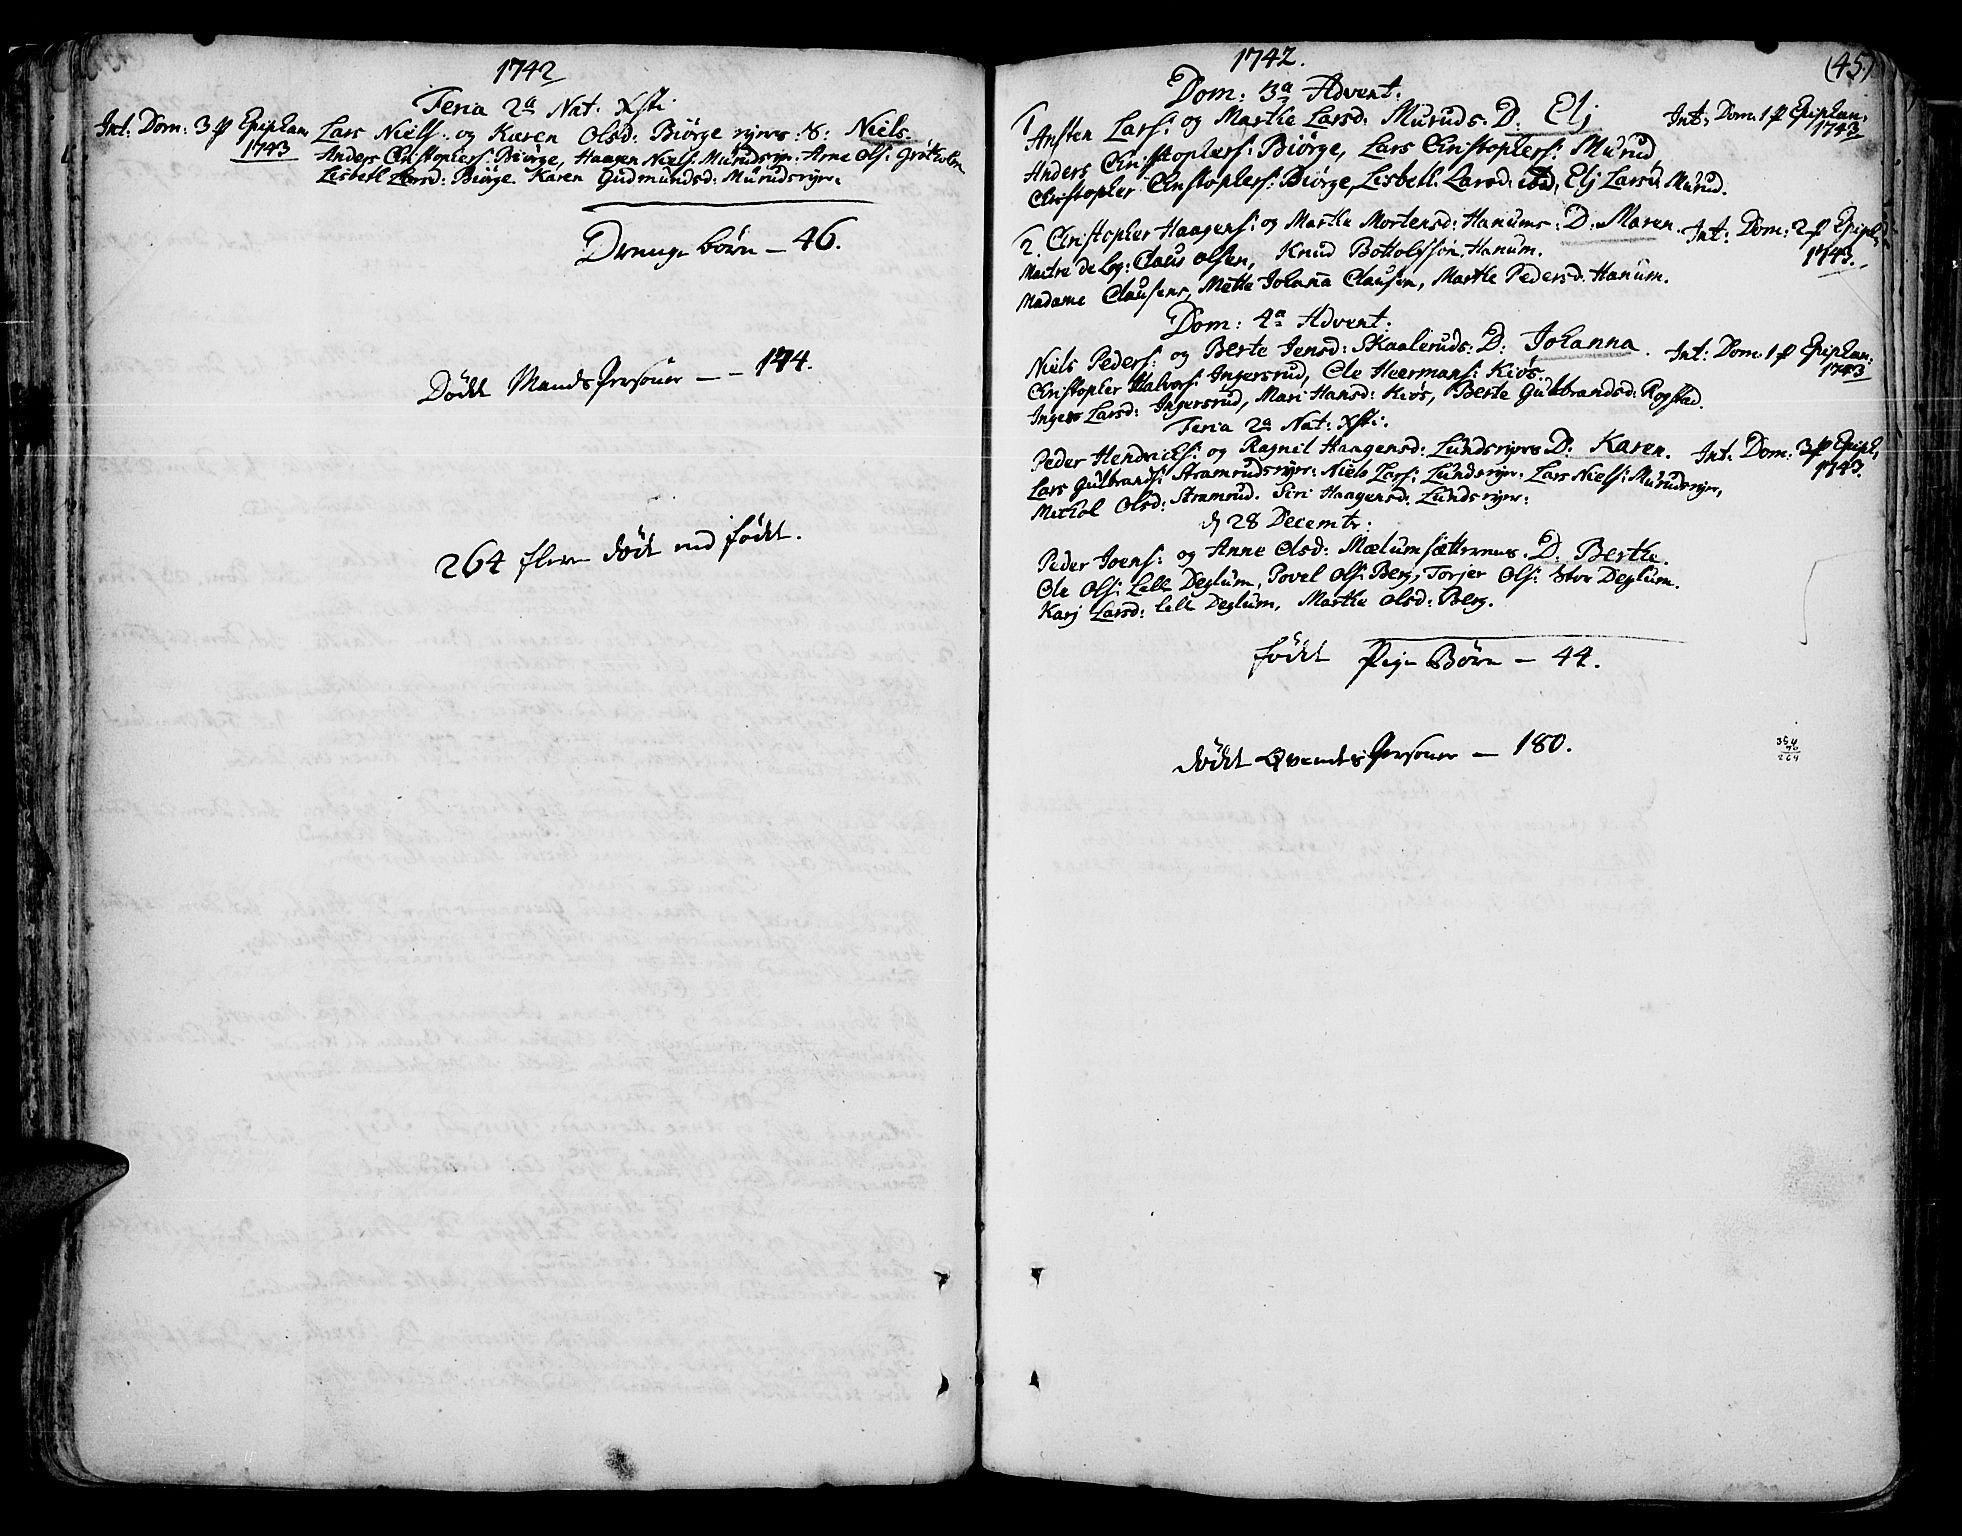 1742
Feria 2a Nat: Xsti
Int: Dom: 3 p Epiphan 1743
Lars Niels: og Karen Olsd: Biørge ejers: S: Niels.
Anders Christophers: Biørge, Haagen Niels: Murudsejer: Arne Ols: Grøtholm
Lisbeth Larsd: Biørge. Karen Gudmundsd: Murudsejer.
Drenge børn – 46.
Døde Mands Personer – – 174.
264 flere død end fødde.
1742.
(45)
Dom: 3a Advent:
1 Ansten Lars: og Marthe Larsd: Muruds. D. Elj
Int: Dom: 1 p Epiphan: 1743
Anders Christophers: Biørge, Lars Christophers: Murud
Christopher Christophers: Biørge, Lisbeth Larsd: ibd, Elj Larsd: Murud.
2. Christopher Haagens: og Marthe Mortensd: Hanums: D: Maren.
Int: Dom: 2 p Epiph: 1743.
Maitre de Log: Claus Olsen, Knud Botholfsøn Hanum.
Madame Clausens, Mette Johanna Clausen, Marthe Pedersd: Hanum.
Dom: 4a Advent:
Niels Peders: og Berte Jensd: Skaaleruds: D: Johanna.
Int: Dom: 1 p Epiphan: 1743
Christopher Halvors: Ingersrud, Ole Heermans: Kiøs.
Inger Larsd: Ingersrud, Mari Hansd: Kiøs, Berte Guldbrandsd: Rogstad.
Feria 2a Nat: Xsti.
Peder Hendrichs: og Ragnil Haagensd: Lundsejers D: Karen.
Int: Dom: 3 p Epiph: 1743.
Lars Gulbrands: Stramrudsejer: Niels Lars: Lundsejer. Lars Niels: Murudsejer,
Olsd: Stramrud. Siri Haagensd: Lundsejer:
d 28 Decembr:
Peder Joens: og Anne Olsd: Mælumsætternes. D: Berthe.
Ole Ols: Lelle Deglum, Povel Ols: Berg, Torjer Ols: Stor Deglum.
Karj Larsd: Lelle Deglum, Marthe Olsd: Berg.
fødde Pige Børn – 44.
døde Qvinds Personer – 180.
354
90
264